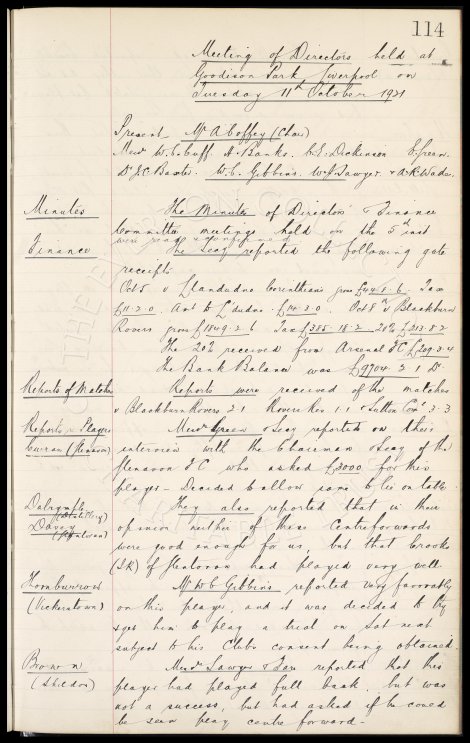 114
Meeting of Directors held at
Goodison Park Liverpool on
Tuesday 11th October 1921
Present Mr A Coffey (Chair)
Messrs W.C. Cuff. A. Banks. C.E. Dickinson E. Green.
Dr J.C. Baxter. W.C. Gibbins. W.J. Sawyer. & A.R. Wade.
Minutes
The Minutes of Directors & Finance
Committee meetings held on the 5th inst
were read & confirmed
Finance
The Secy reported the following gate
receipts
Oct 5 v Llandudno Corinthians gross £44.8.6. Tax
£11.2.0. Amt to L'dudno £10.3.0. Oct 8th v Blackburn
Rovers gross £1849.2.6. Tax £385.18.2 20% £213.8.2
The 20% received from Arsenal FC £209.3.4
The Bank Balance was £9704.3.1 Dr.
Reports of Matches
Reports were received of the matches
v Blackburn Rovers 2.1 Rovers Res 1.1 & Sutton Com' 3-3
Reports on Players
Curran (Pleason)
Messrs Green & Secy reported on their
interview with the Chairman & Secy of the
F C who asked £3000 for his
player - Decided to allow same to lie on table
Dalrymple
Davey
They also reported that in their
opinion neither of these centre forwards
were good enough for us, but that Crooks
(I.R.) of had played very well
Hornburrow
(Vickerstown)
Mr W C Gibbins reported very favorably
on this player, and it was decided to try
& get him to play a trial on Sat next
subject to his Clubs consent being obtained.
Brown
(Shildon)
Messrs Sawyer & reported that this
player had played full back, but was
not a success, but had asked if he could
be seen play centre forward -